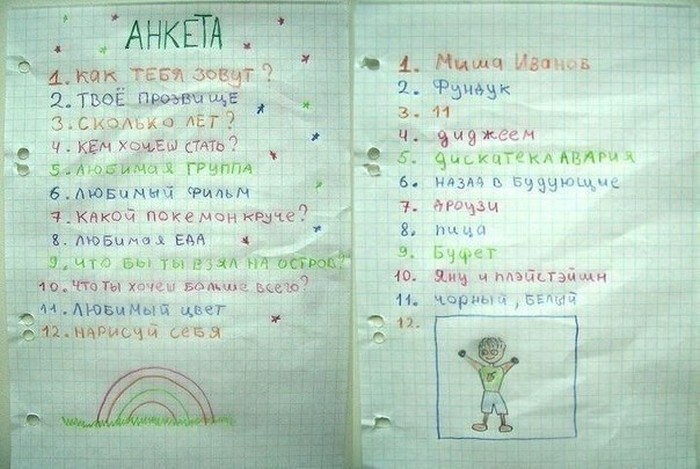 АНКЕТА
1. КАК ТЕБЯ ЗОВУТ?
2. ТВОЁ ПРОЗВИЩЕ
3. СКОЛЬКО ЛЕТ?
4. КЕМ ХОЧЕШ СТАТЬ?
5. ЛЮБИМАЯ ГРУППА
6. ЛЮБИМЫЙ ФИЛЬМ
7. КАКОЙ ПОКЕМОН КРУЧЕ?
8. ЛЮБИМАЯ ЕДА
9. ЧТО БЫ ТЫ ВЗЯЛ НА ОСТРОВ?
10. ЧТО ТЫ ХОЧЕШ БОЛЬШЕ ВСЕГО?
11. ЛЮБИМЫЙ ЦВЕТ
12. НАРИСУЙ СЕБЯ
1. Миша Иванов
2. Фундук
3. 11
4. диджеем
5. ДИСКАТЕКА АВАРИЯ
6. НАЗАД В БУДУЮЩИЕ
7. ДРОУЗИ
8. пица
9. Буфет
10. Яну и плэйстэйшн
11. ЧОРНЫЙ, БЕЛЫЙ
12.